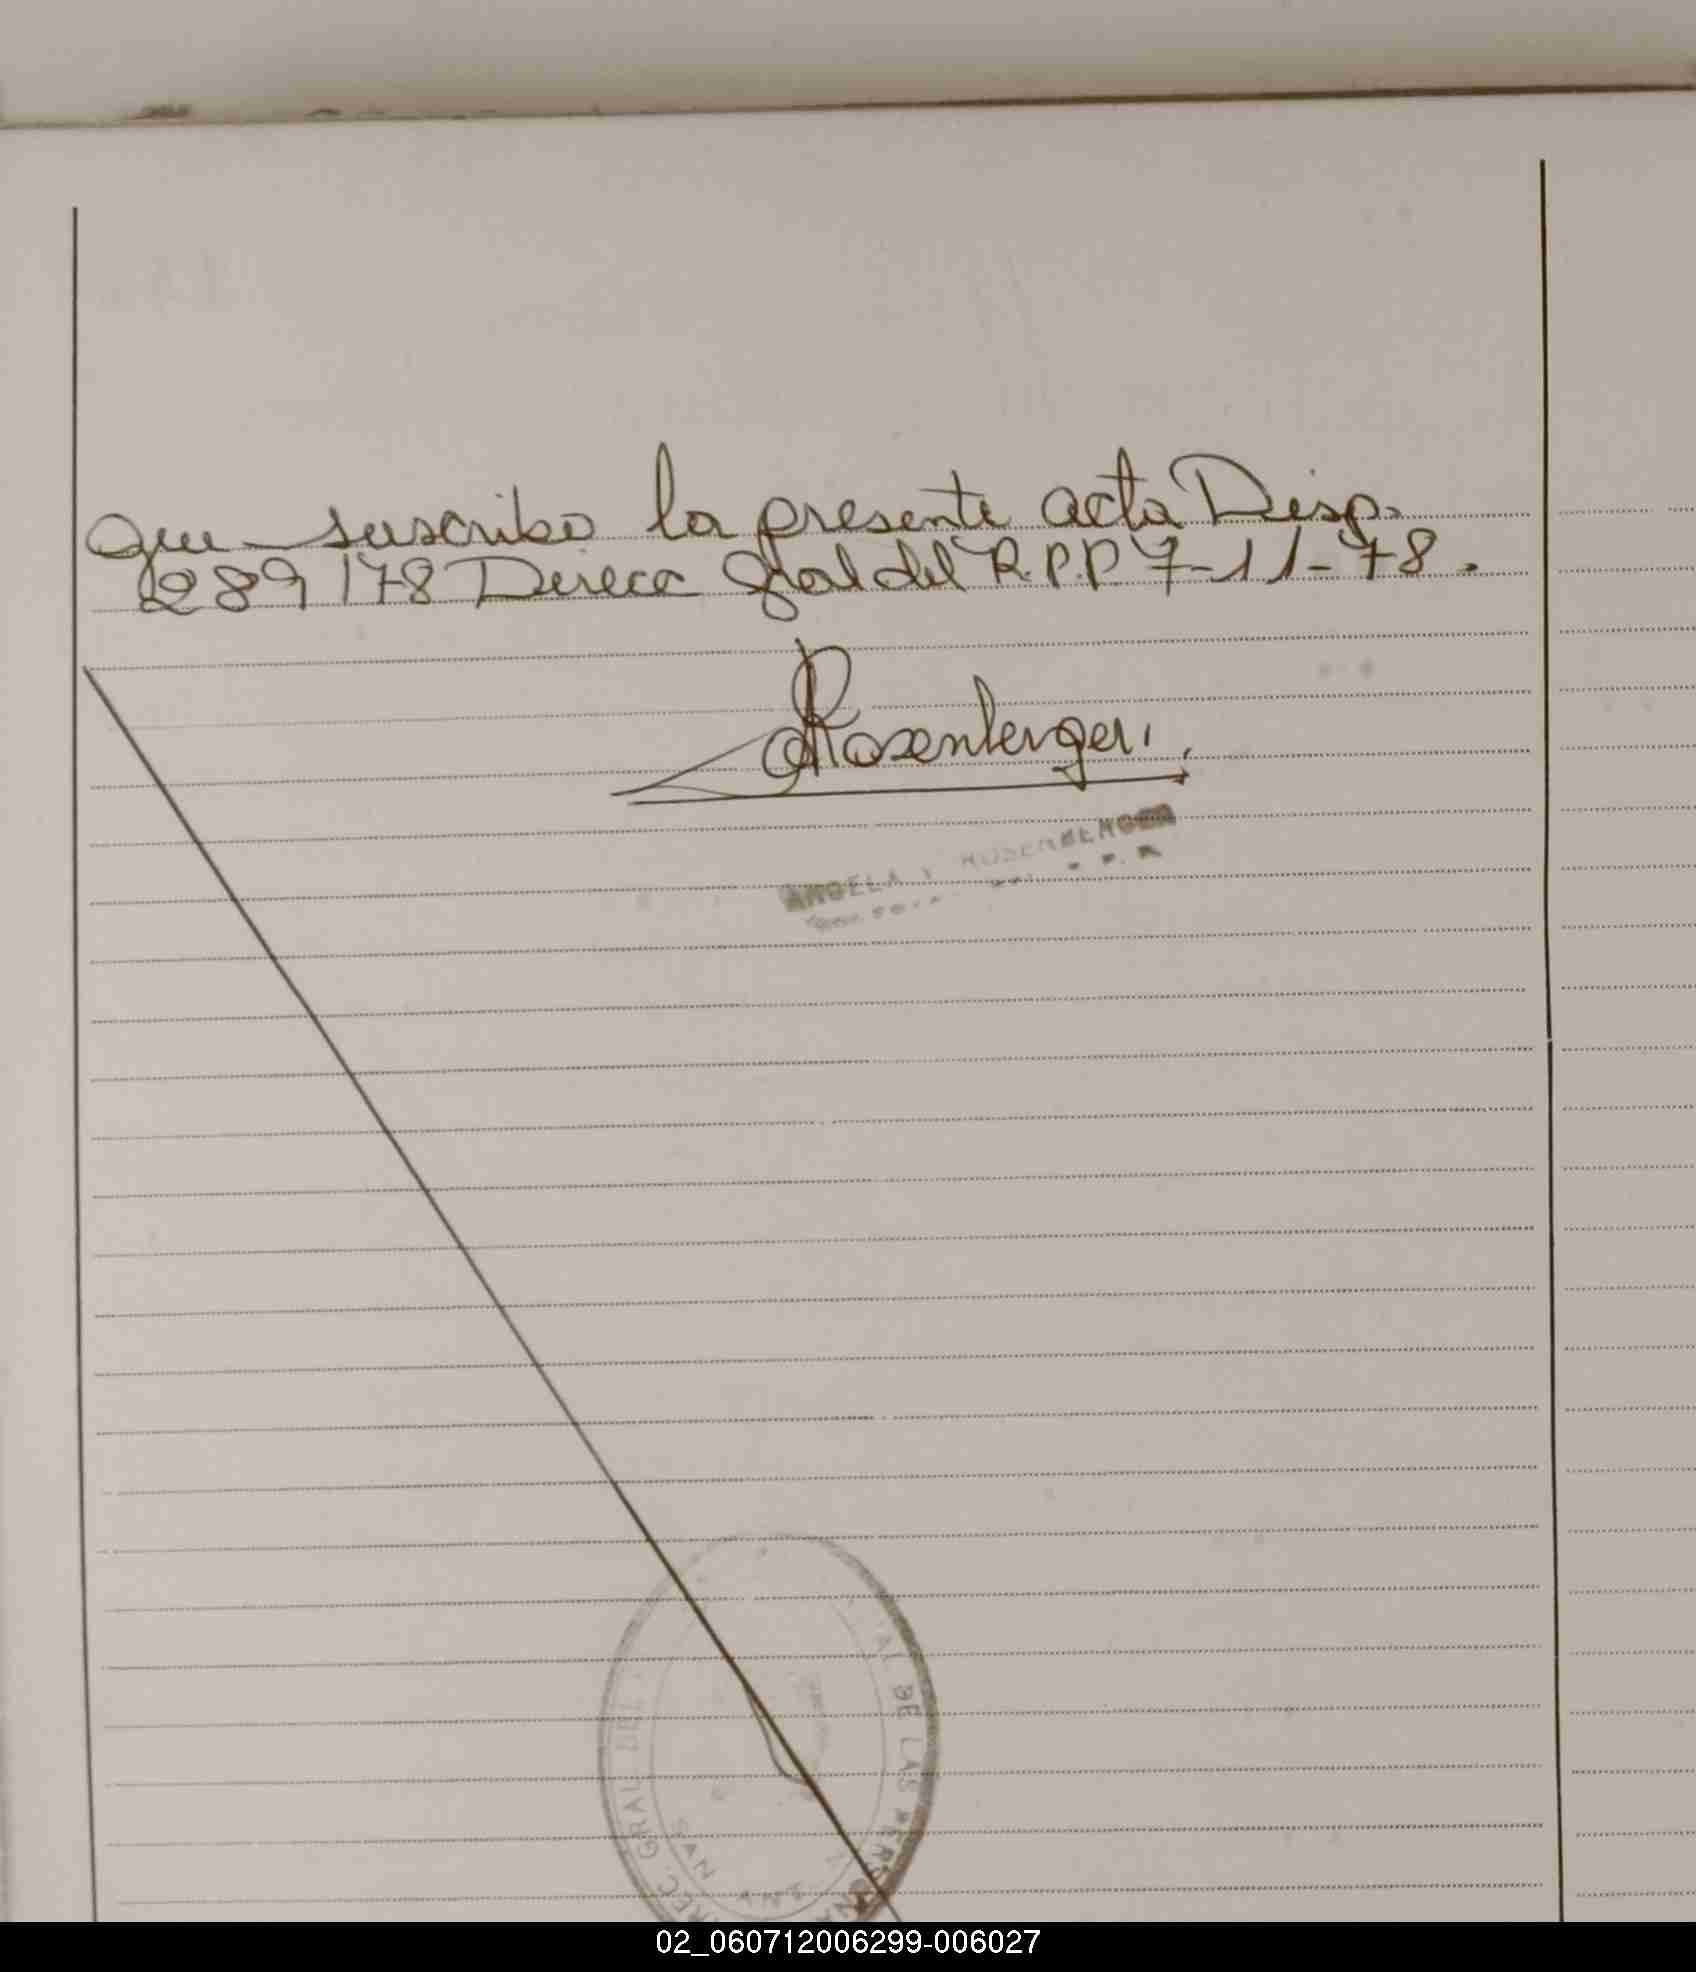 que suscribo la presente acta Disp.
289/78 Direcc Gral del R.P.P 7-11-78.
Rosenberger
ANGELA Y ROSENBERGER
REC. GRAL DEL
AL DE LAS PERSONA
SAN
02_060712006299-006027